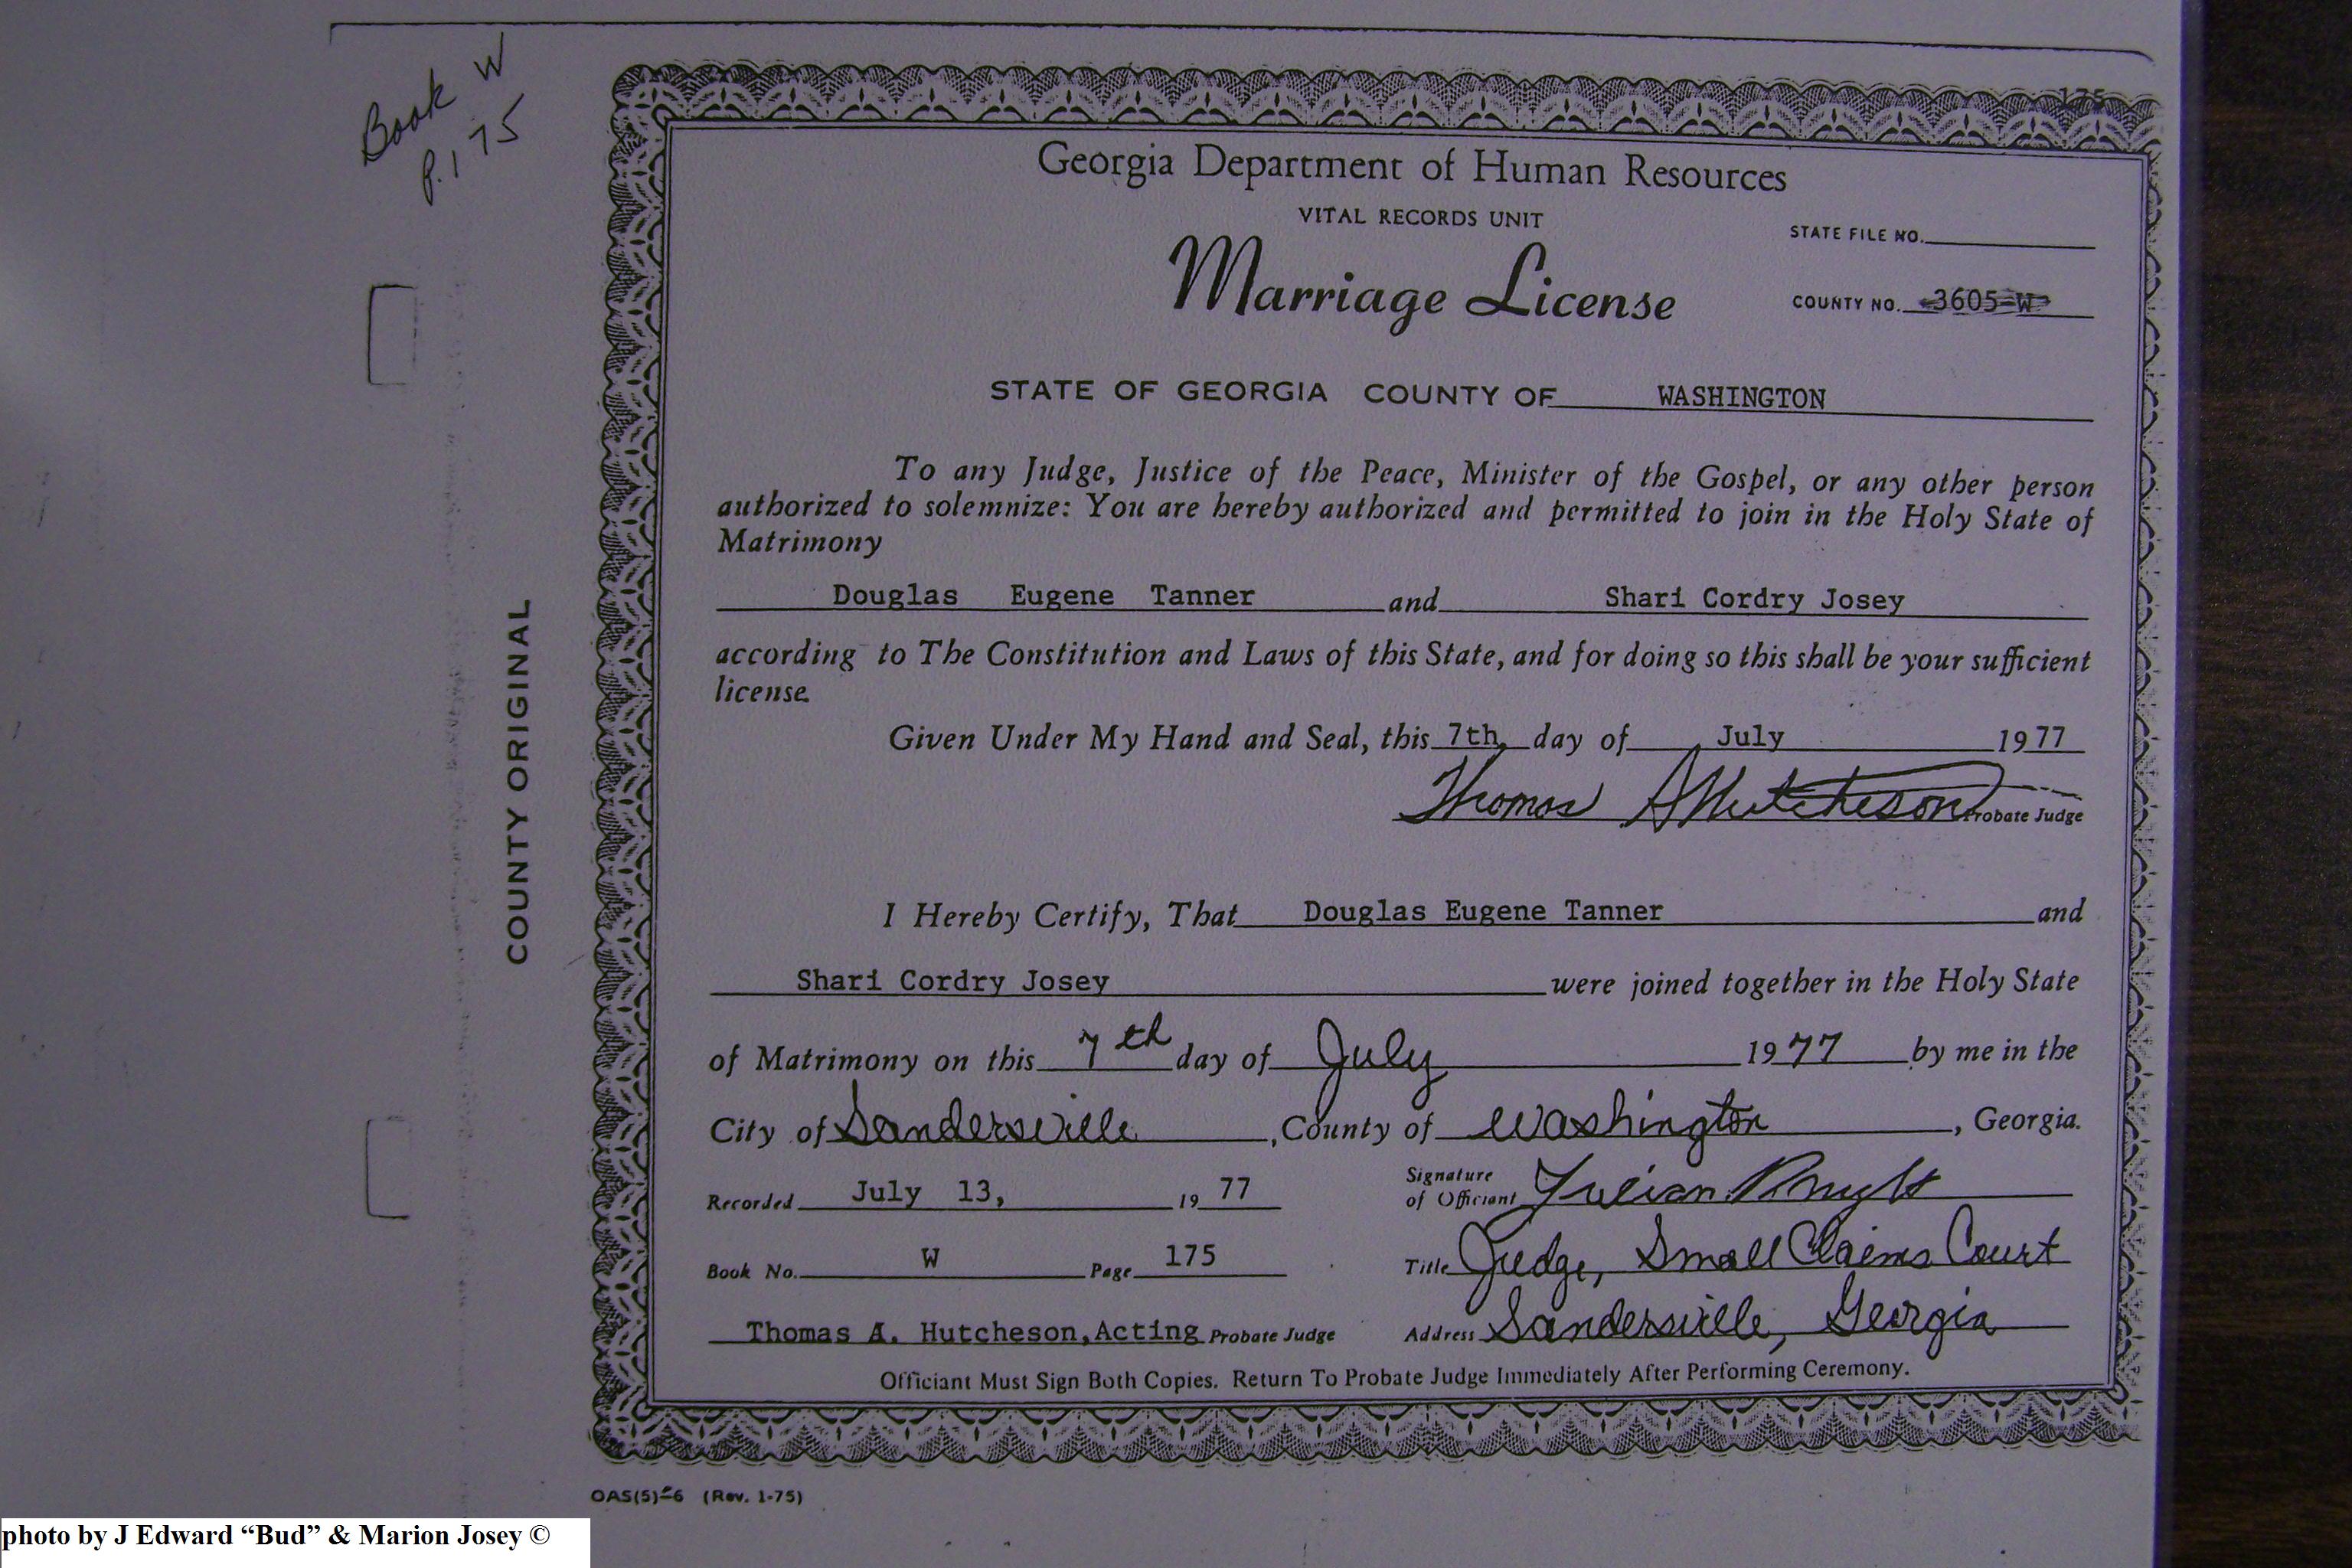 Book W
P. 175
175
Georgia Department of Human Resources
VITAL RECORDS UNIT
STATE FILE NO.
Marriage License
COUNTY NO. 3605-W
STATE OF GEORGIA COUNTY OF WASHINGTON
To any Judge, Justice of the Peace, Minister of the Gospel, or any other person
authorized to solemnize: You are hereby authorized and permitted to join in the Holy State of
Matrimony
Douglas Eugene Tanner and Shari Cordry Josey
according to The Constitution and Laws of this State, and for doing so this shall be your sufficient
license.
Given Under My Hand and Seal, this 7th day of July 1977
Thomas A Hutcheson Probate Judge
COUNTY ORIGINAL
I Hereby Certify, That Douglas Eugene Tanner and
Shari Cordry Josey were joined together in the Holy State
of Matrimony on this 7th day of July 1977 by me in the
City of Sandersville, County of Washington, Georgia.
Recorded July 13, 1977
Signature
of Officiant
Book No. W Page 175
Title Judge, Small Claims Court
Thomas A. Hutcheson,Acting Probate Judge
Address Sandersville, Georgia
Officiant Must Sign Both Copies. Return To Probate Judge Immediately After Performing Ceremony.
OAS(5)-6 (Rev. 1-75)
photo by J Edward “Bud” & Marion Josey ©